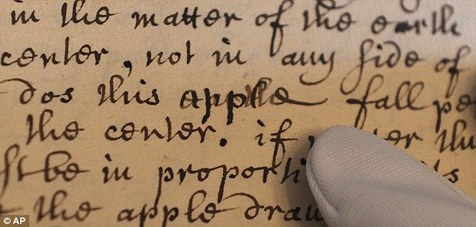 in the matter of the earth
center, not in any side of
dos this apple fall pe
the center. if
st be in proporti
the apple draw
© AP